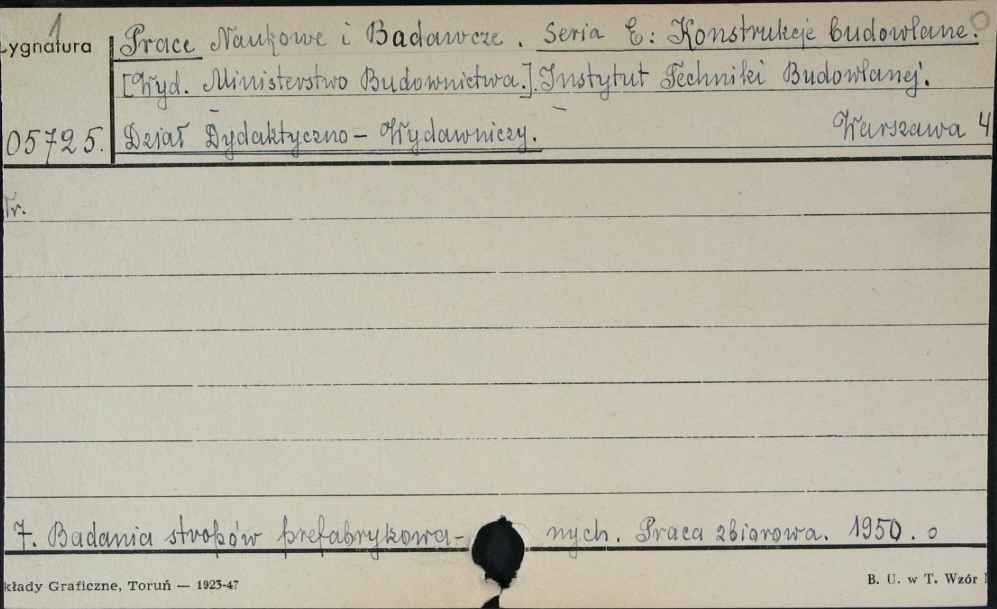 1
ygnatura
Prace Naukowe i Badawcze. Seria E: Konstrukcje budowlane.
[Wyd. Ministerstwo Budownictwa.]. Instytut Techniki Budowlanej.
05725. Dział Dydaktyczno - Wydawniczy. Warszawa 4
Tr.
7. Badania stropów prefabrykowa- nych. Praca zbiorowa. 1950. o
kłady Graficzne, Toruń — 1923-47 B. U. w T. Wzór